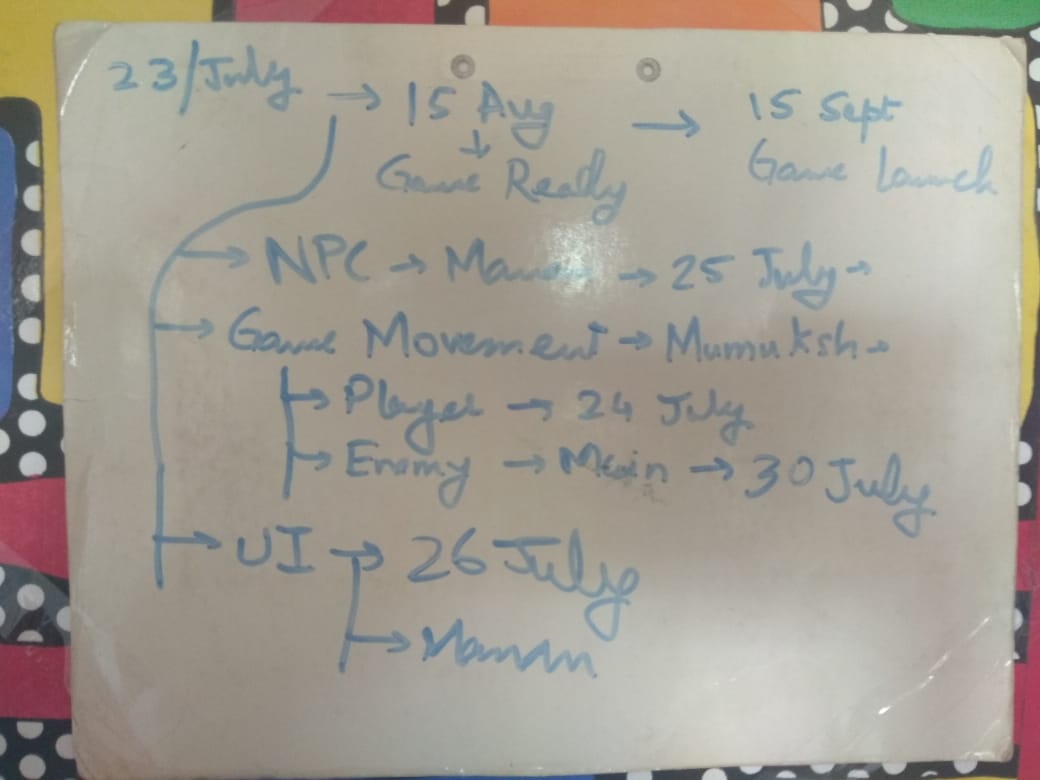 23/July → 15 Aug → 15 Sept
↓
Game Ready Game Launch
→ NPC → Manan → 25 July →
→ Game Movement → Mumuksh →
→ Player → 24 July
→ Enemy → Main → 30 July
→ UI → 26 July
→ Manan